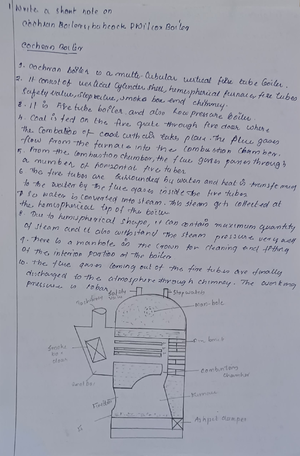 1 Write a short note on
Cochran Boiler, Babcock & Wilcox Boiler
Cochran Boiler
1. Cochran boiler is a multi-tubular vertical fire tube boiler.
2. It consist of vertical cylinder shell, hemispherical furnace, fire tubes
Safety valve, stop valve, smoke box and chimney.
3. It is fire tube boiler and also low pressure boiler.
4. Coal is fed on the fire grate through fire door where
the combustion of coal takes place. The flue gases
flow from the furnace into the combustion chamber.
5. From the combustion chamber, the flue gases passes through
a number of horizontal fire tubes.
6. The fire tubes are surrounding by water and heat is transferred
to the water by the flue gases inside the fire tubes
7. So water is converted into steam. This steam gets collected at
the hemispherical top of the boiler
8. Due to hemispherical shape, it can contain maximum quantity
of steam and it also withstand the steam pressure very well
9. There is a manhole on the crown for cleaning and fitting
of the interior portion of the boiler
10. The flue gases coming out of the fire tubes are finally
discharged to the atmosphere through chimney. The working
pressure is 10 bar.
Stop valve
Man-hole
Smoke box door
Fire brick
Combustion chamber